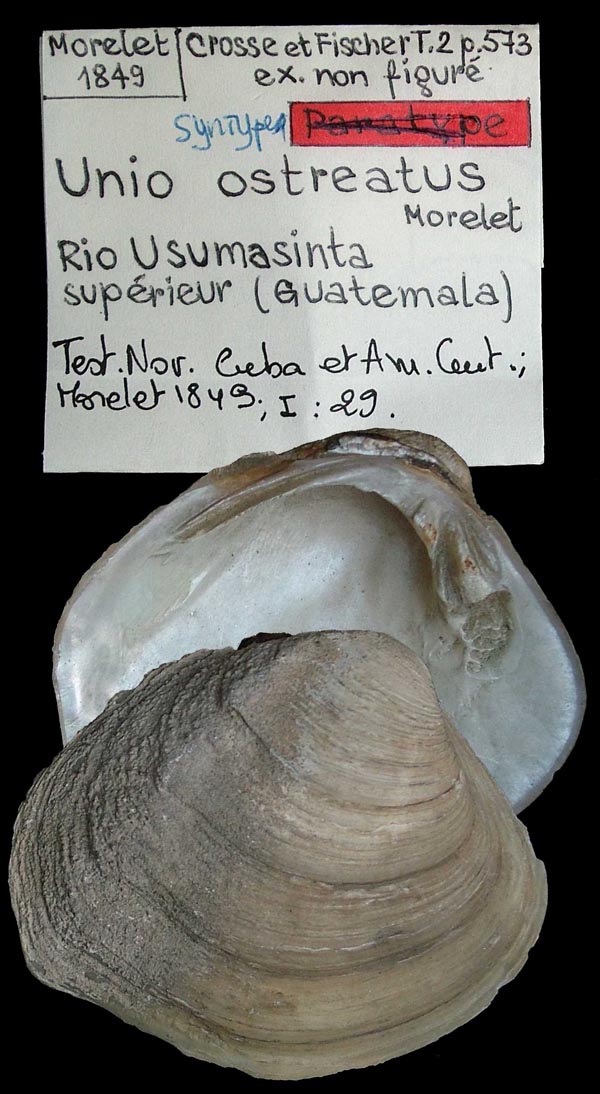 Morelet
1849
Crosse et Fischer T.2 p.573
ex. non figuré
Syntypes Paratype
Unio ostreatus
Morelet
Rio Usumasinta
supérieur (Guatemala)
Test. Nov. Cuba et Am. Cent.;
Morelet 1849; I : 29.